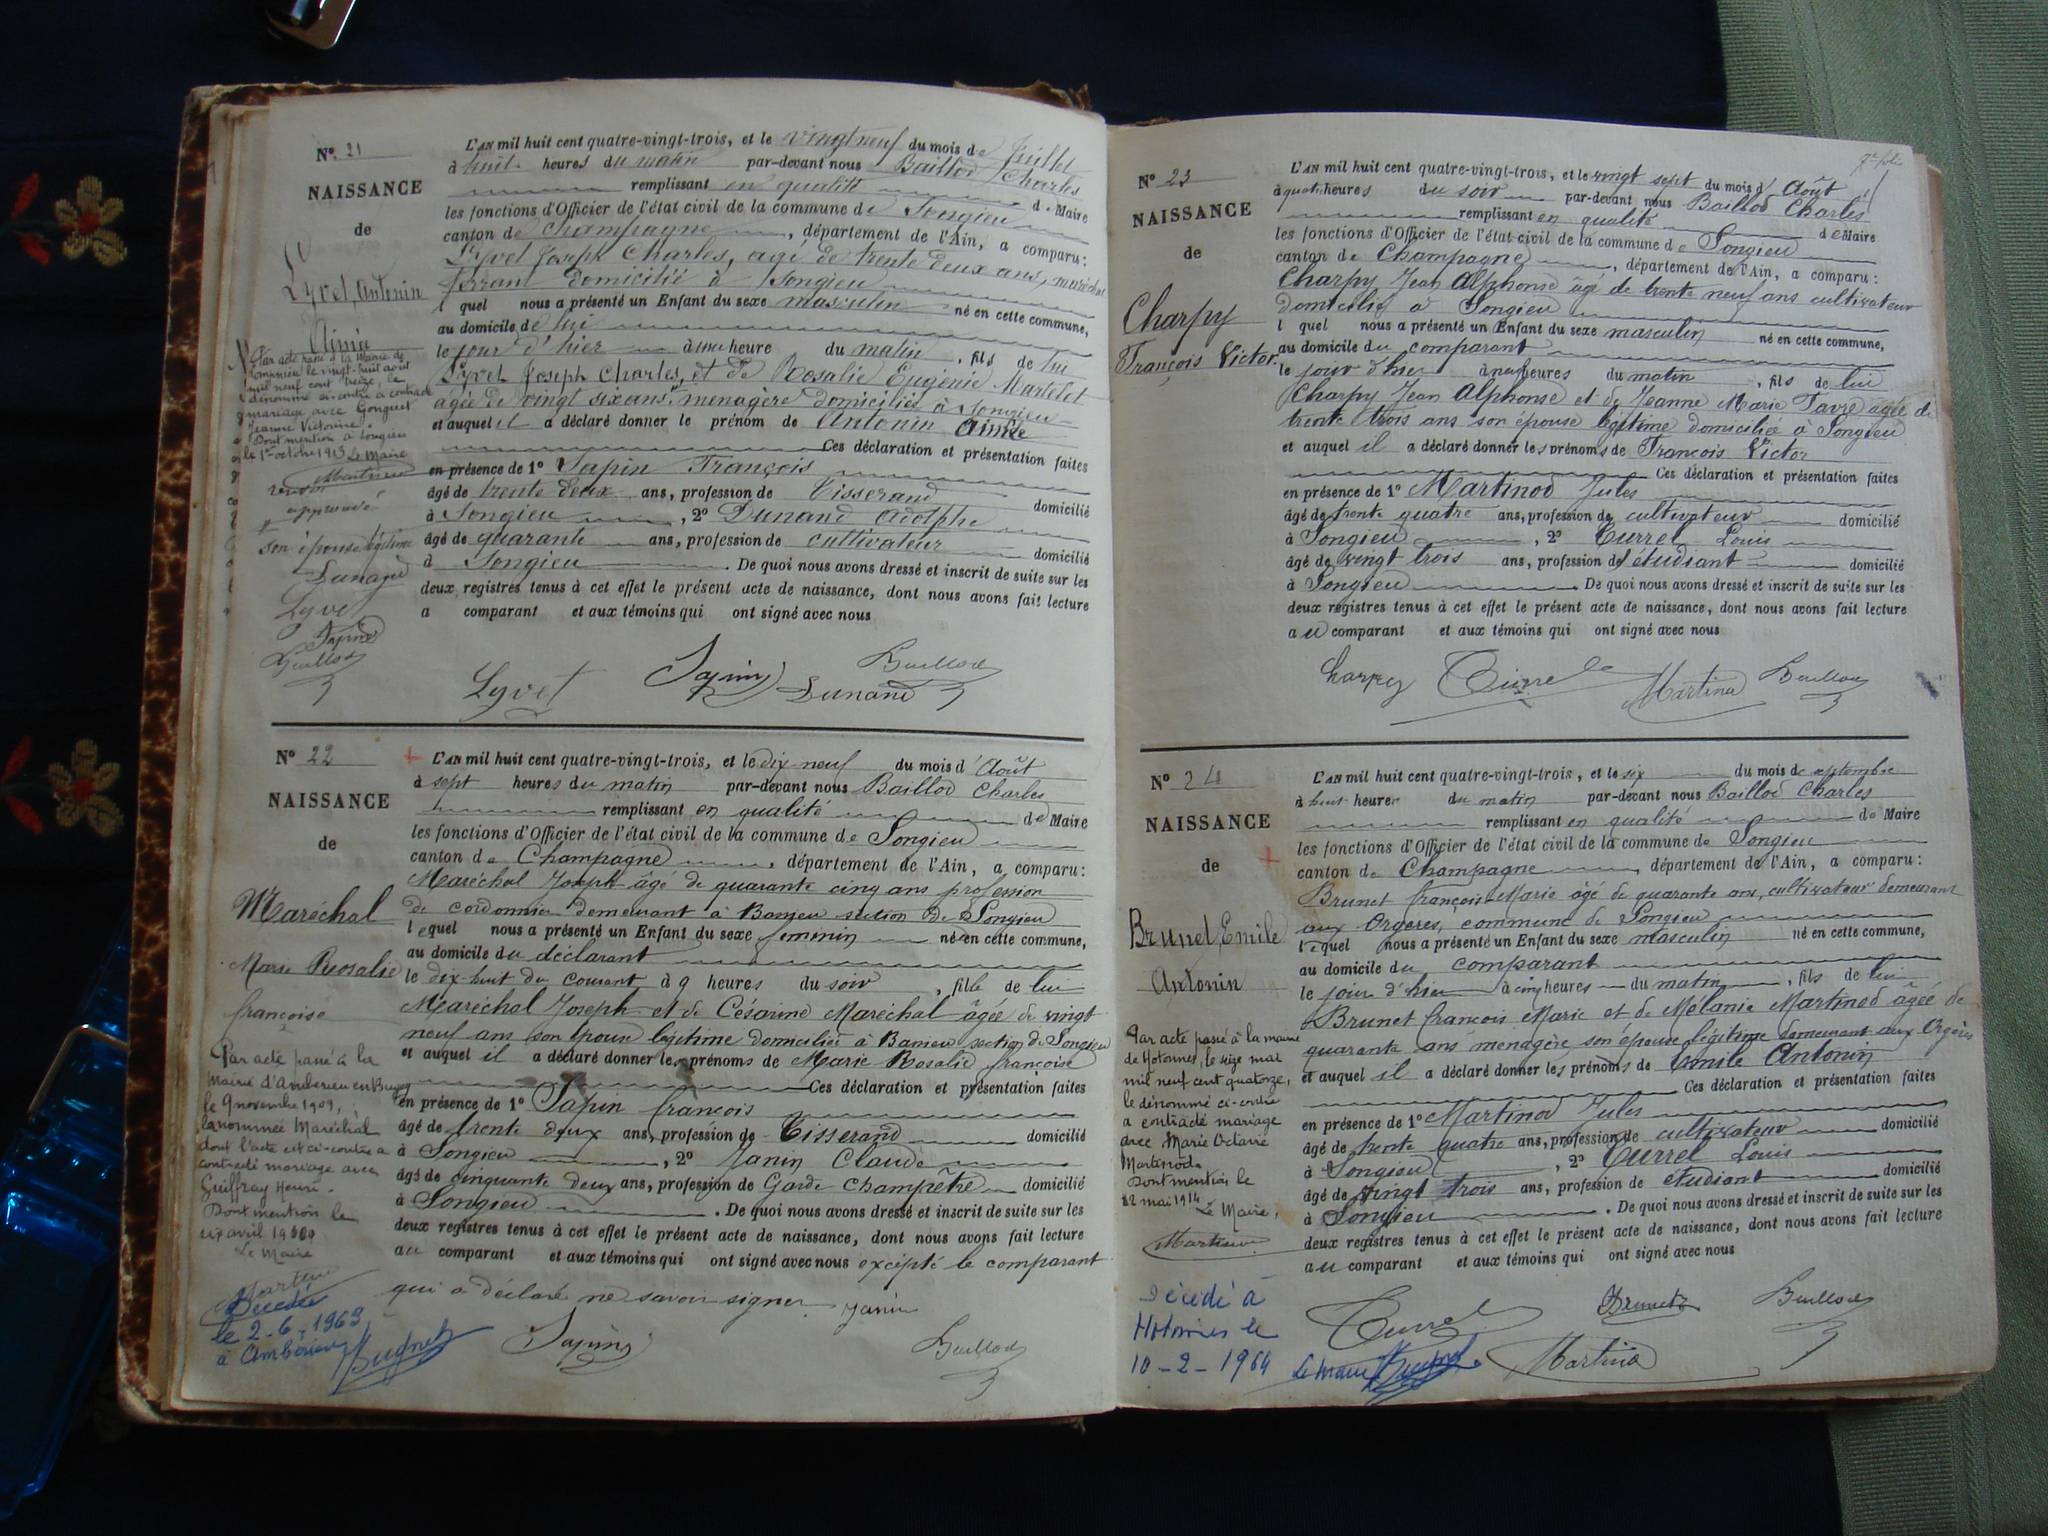 N° 21
NAISSANCE
de
Lyvet, Antonin
Aimé
Par acte passé à la Mairie de
le vingt-huit août
mil neuf cent treize, le
dénommé ci-contre a contracté
mariage avec Gonguet
Jeanne Victorine.
Dont mention à Songieu
le 1er octobre 1913 Le Maire
renvoi
approuvé
son épouse légitime
Dunand
Lyvet
Sapin
Baillod
L'AN mil huit cent quatre-vingt-trois, et le vingt neuf du mois de Juillet
à huit heures du matin par-devant nous Baillod Charles
remplissant en qualité de Maire
les fonctions d'Officier de l'état civil de la commune de Songieu
canton de Champagne, département de l'Ain, a comparu:
Lyvet Joseph Charles, agé de trente deux ans, maréchal
ferrant domicilié à Songieu
l quel nous a présenté un Enfant du sexe masculin né en cette commune,
au domicile de lui
le jour d'hier à une heure du matin, fils de lui
Lyvet Joseph Charles, et de Rosalie Eugénie Martelet
agée de vingt six ans, ménagère domiciliés à Songieu
et auquel il a déclaré donner le prénom de Antonin Aimée
Ces déclaration et présentation faites
en présence de 1° Sapin François
âgé de trente deux ans, profession de Tisserand domicilié
à Songieu, 2° Dunand Adolphe
âgé de quarante ans, profession de cultivateur domicilié
à Songieu. De quoi nous avons dressé et inscrit de suite sur les
deux registres tenus à cet effet le présent acte de naissance, dont nous avons fait lecture
a comparant et aux témoins qui ont signé avec nous
Lyvet Sapin Dunand Baillod
N° 22
NAISSANCE
de
Maréchal
Marie Rosalie
françoise
Par acte passé à la
Mairie d'Ambérieu en Bugey
le 9 novembre 1909,
la nommée Maréchal
dont l'acte est ci-contre a
contracté mariage avec
Guiffray Henri.
Dont mention le
six avril
Le Maire
Décédée
le 2-6-1963
à Ambérieu
L'AN mil huit cent quatre-vingt-trois, et le dix-neuf du mois d'Août
à sept heures du matin par-devant nous Baillod Charles
remplissant en qualité de Maire
les fonctions d'Officier de l'état civil de la commune de Songieu
canton de Champagne, département de l'Ain, a comparu:
Maréchal Joseph âgé de quarante cinq ans profession
de cordonnier demeurant à Bameu section de Songieu
lequel nous a présenté un Enfant du sexe feminin né en cette commune,
au domicile du déclarant
le dix-huit du courant à 9 heures du soir, fille de lui
Maréchal Joseph et de Césarine Maréchal âgée de vingt
neuf ans son épouse légitime domiciliés à Bameu section de Songieu
et auquel il a déclaré donner les prénoms de Marie Rosalie françoise
Ces déclaration et présentation faites
en présence de 1° Sapin françois
âgé de trente deux ans, profession de Tisserand domicilié
à Songieu, 2° Janin Claude
âgé de cinquante deux ans, profession de Garde Champêtre domicilié
à Songieu. De quoi nous avons dressé et inscrit de suite sur les
deux registres tenus à cet effet le présent acte de naissance, dont nous avons fait lecture
au comparant et aux témoins qui ont signé avec nous excépté le comparant
qui a déclaré ne savoir signer Janin
Sapin Baillod
7e folio
N° 23
NAISSANCE
de
Charpy
François Victor
L'AN mil huit cent quatre-vingt-trois, et le vingt sept du mois d'Août
à quatre heures du soir par-devant nous Baillod Charles
remplissant en qualité de Maire
les fonctions d'Officier de l'état civil de la commune de Songieu
canton de Champagne, département de l'Ain, a comparu:
Charpy Jean Alphonse âgé de trente neuf ans cultivateur
domicilié à Songieu
l quel nous a présenté un Enfant du sexe masculin né en cette commune,
au domicile du comparant
le jour d'hier à neuf heures du matin, fils de lui
Charpy Jean Alphonse et de Jeanne Marie Favre agée de
trente trois ans son épouse légitime domiciliée à Songieu
et auquel il a déclaré donner les prénoms de François Victor
Ces déclaration et présentation faites
en présence de 1° Martinod Jules
âgé de trente quatre ans, profession de cultivateur domicilié
à Songieu, 2° Turrel Louis
âgé de vingt trois ans, profession d'étudiant domicilié
à Songieu. De quoi nous avons dressé et inscrit de suite sur les
deux registres tenus à cet effet le présent acte de naissance, dont nous avons fait lecture
au comparant et aux témoins qui ont signé avec nous
Charpy Turrel Martinod Baillod
N° 24
NAISSANCE
de
Brunet Emile
Antonin
Par acte passé à la mairie
de Hotonnes, le seize mai
mil neuf cent quatorze,
le dénommé ci-contre
a contracté mariage
avec Marie Octavie
Martinod.
Dont mention, le
22 mai 1914
Le Maire,
Décédé à
Hotonnes le
10-2-1964 Le Maire
L'AN mil huit cent quatre-vingt-trois, et le six du mois de septembre
à huit heures du matin par-devant nous Baillod Charles
remplissant en qualité de Maire
les fonctions d'Officier de l'état civil de la commune de Songieu
canton de Champagne, département de l'Ain, a comparu:
Brunet françois Marie âgé de quarante ans, cultivateur demeurant
aux Orgères, commune de Songieu
lequel nous a présenté un Enfant du sexe masculin né en cette commune,
au domicile du comparant
le jour d'hier à cinq heures du matin, fils de lui
Brunet françois Marie et de Mélanie Martinod âgée de
quarante ans ménagère son épouse légitime demeurant aux Orgères
et auquel il a déclaré donner les prénoms de Emile Antonin
Ces déclaration et présentation faites
en présence de 1° Martinod Jules
âgé de trente quatre ans, profession de cultivateur domicilié
à Songieu, 2° Turrel Louis
âgé de vingt trois ans, profession de étudiant domicilié
à Songieu. De quoi nous avons dressé et inscrit de suite sur les
deux registres tenus à cet effet le présent acte de naissance, dont nous avons fait lecture
au comparant et aux témoins qui ont signé avec nous
Turrel Brunet Baillod
Martinod